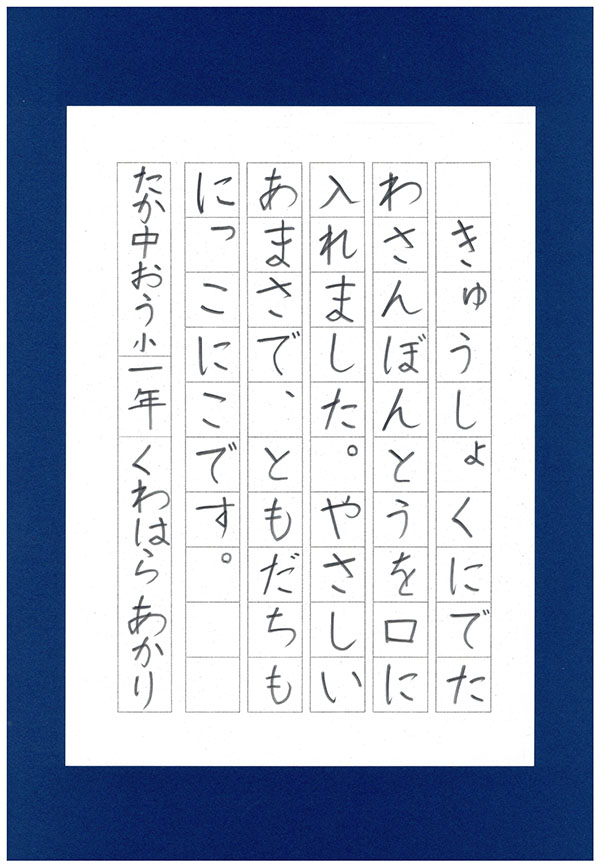 きゅうしょくにでた
わさんぼんとうを口に
入れました。やさしい
あまさで、ともだちも
にっこにこです。
たか中おう小一年 くわはら あかり